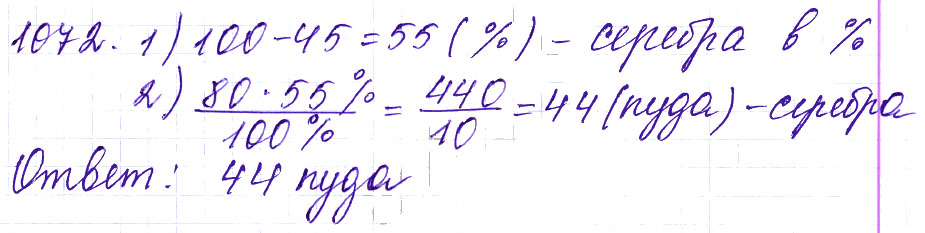 1072. 1) 100-45=55 (%) - серебра в %
2) 80·55% / 100% = 440 / 10 = 44 (пуда) - серебра
Ответ: 44 пуда